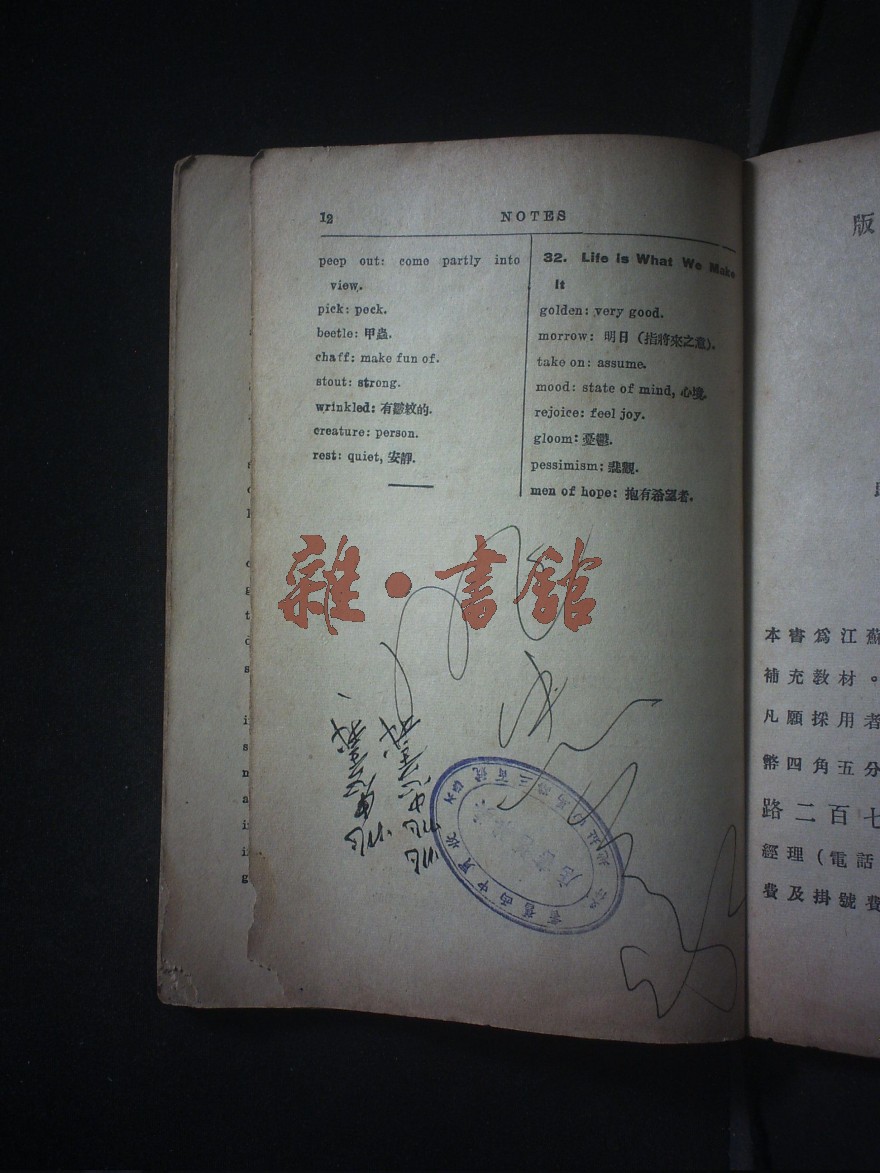 12
NOTES
peep out: come partly into
view.
pick: peck.
beetle: 甲蟲.
chaff: make fun of.
stout: strong.
wrinkled: 有皺紋的.
creature: person.
rest: quiet, 安靜.
32. Life Is What We Make
It
golden: very good.
morrow: 明日 (指將來之意).
take on: assume.
mood: state of mind, 心境.
rejoice: feel joy.
gloom: 憂鬱.
pessimism: 悲觀.
men of hope: 抱有希望者.
雜·書館
版
本書爲江蘇
補充教材。
凡願採用者
幣四角五分
路二百七
經理(電話
費及掛號費